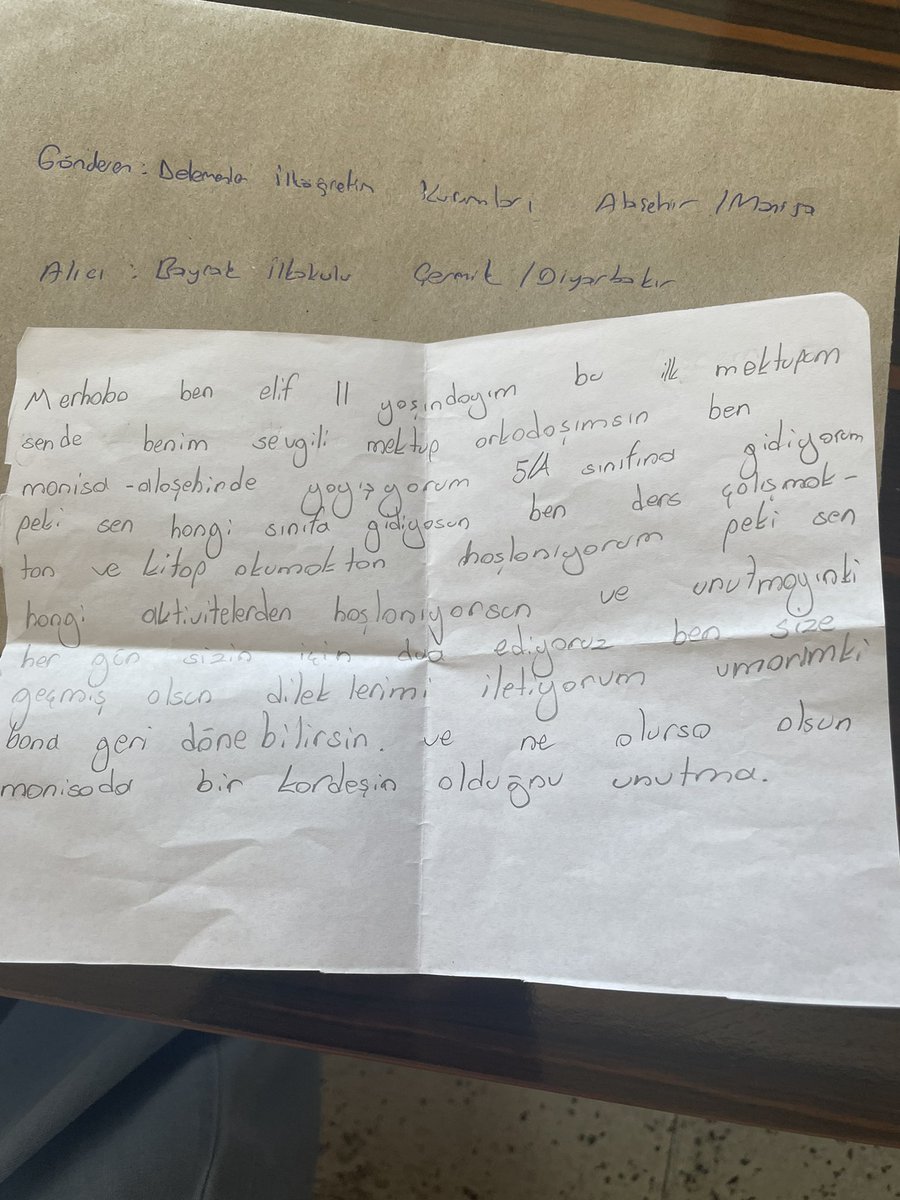 Gönderen: Delemenler İlköğretim Kurumları Alaşehir / Manisa
Alıcı : Bayrak İlkokulu Çermik / Diyarbakır
Merhaba ben elif 11 yaşındayım bu ilk mektupum
sende benim sevgili mektup arkadaşımsın ben
manisa-alaşehinde yaşıyorum 5/A sınıfına gidiyorum
peki sen hangi sınıfa gidiyosun ben ders çalışmak-
tan ve kitap okumaktan hoşlanıyorum peki sen
hangi aktivitelerden hoşlanıyorsun ve unutmayınki
her gün sizin için dua ediyoruz ben size
geçmiş olsun dileklerimi iletiyorum umarımki
bana geri dönebilirsin. ve ne olursa olsun
manisada bir kardeşin olduğnu unutma.